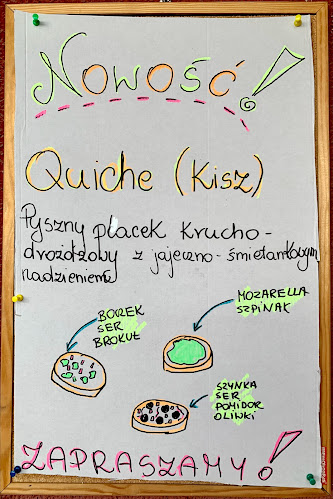 Nowość!
Quiche (Kisz)
Pyszny placek krucho-
drożdżowy z jajeczno-śmietankowym
nadzieniem
BOCZEK
SER
BROKUŁ
MOZARELLA
SZPINAK
SZYNKA
SER
POMIDOR
OLIWKI
ZAPRASZAMY!